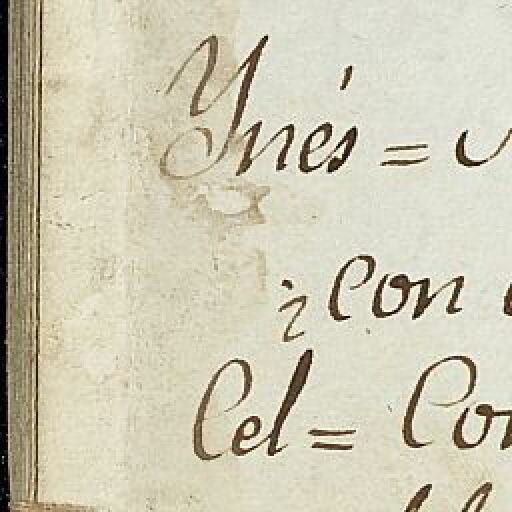 Ynés =
¿Con
Cel = Con